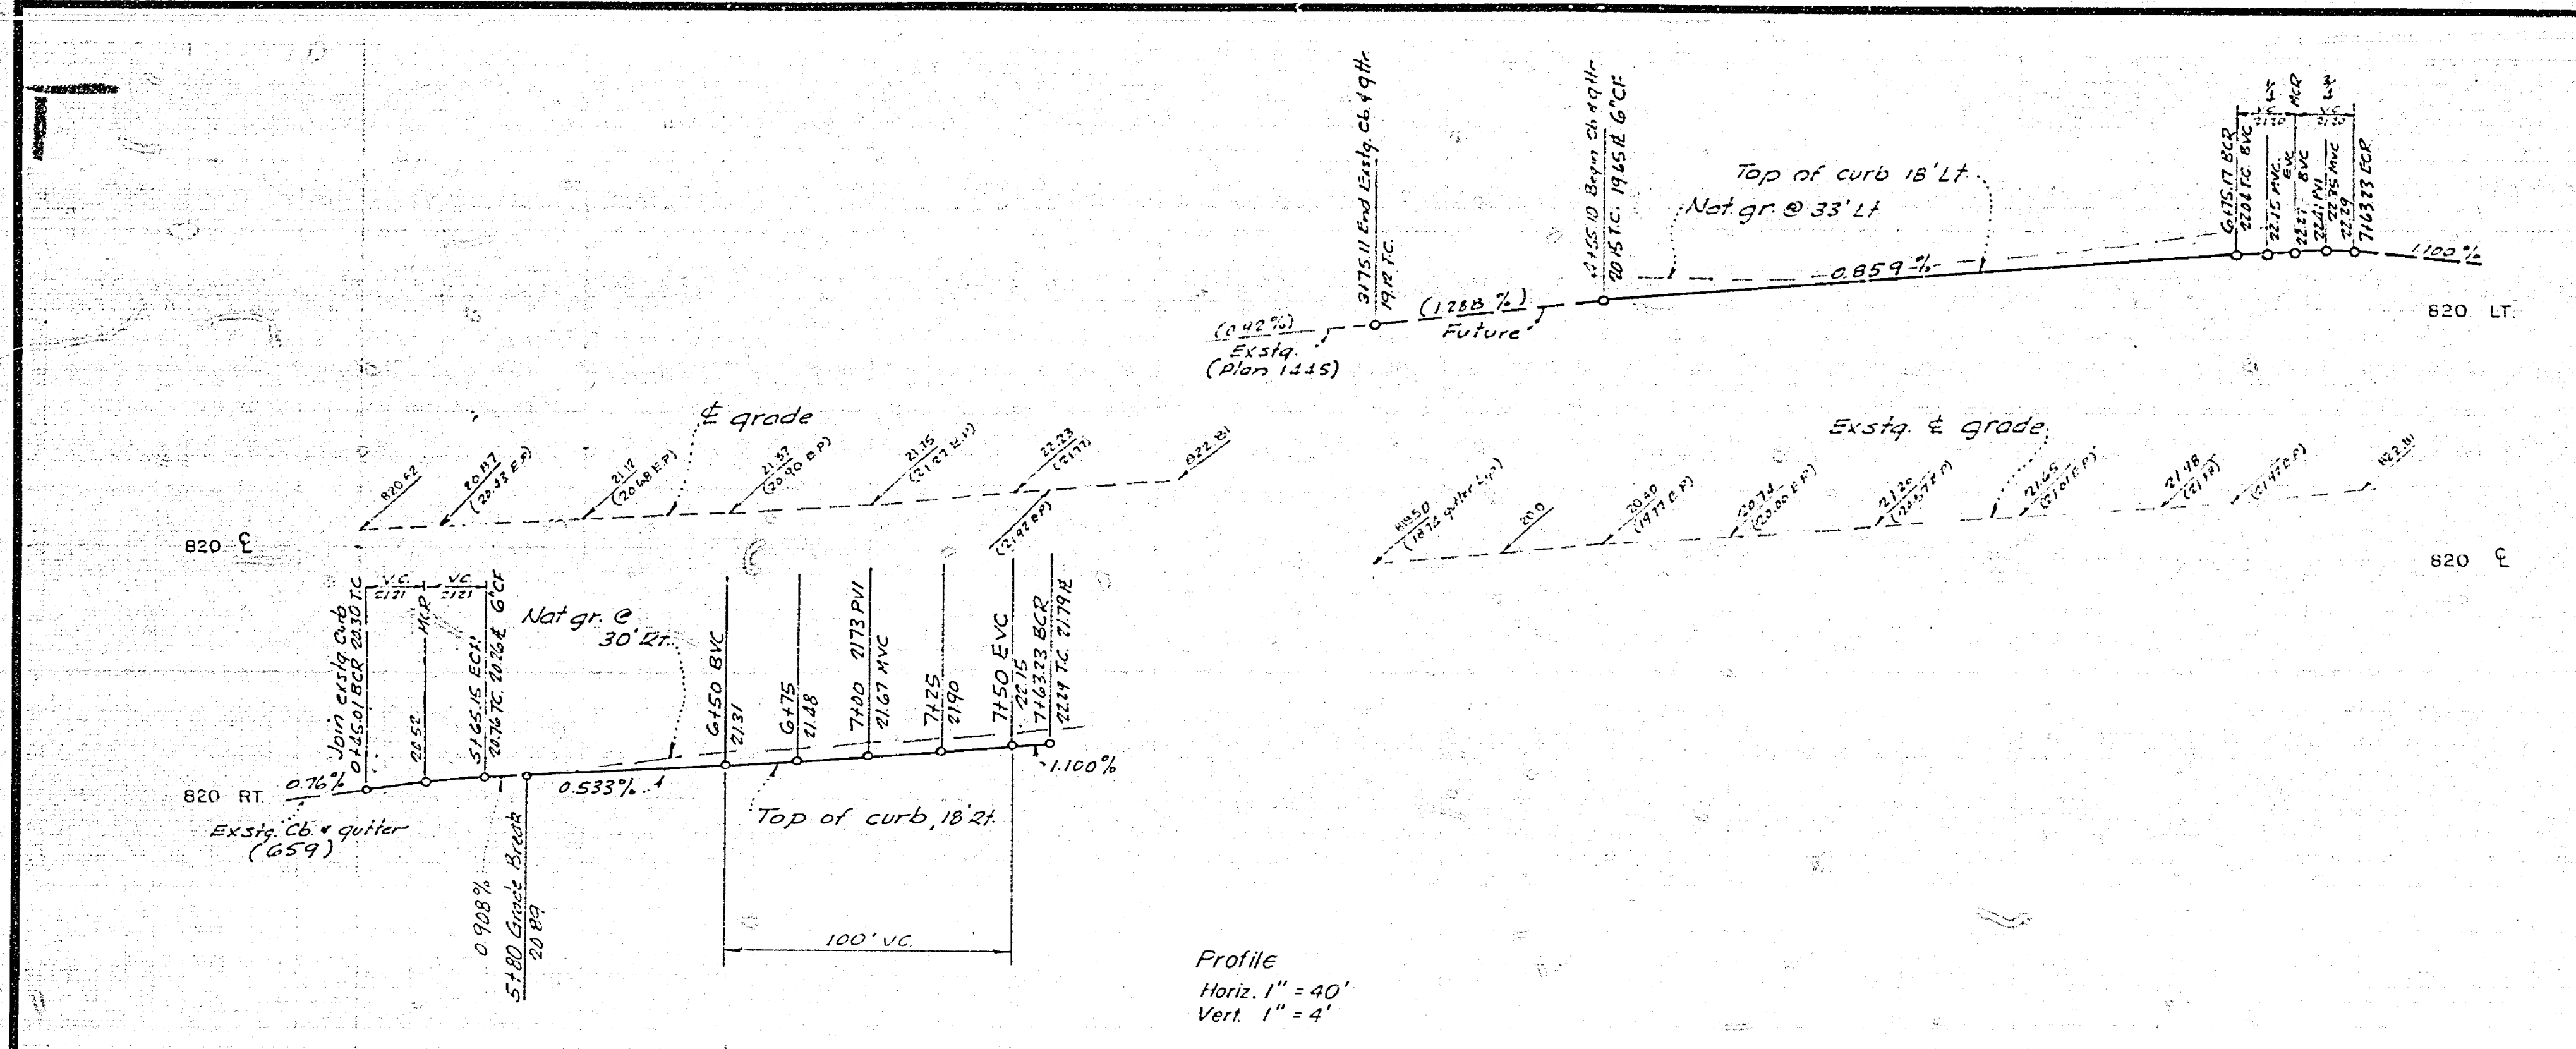 3+75.11 End Exstg. Cb. & gttr
19.12 T.C.
4+55.10 Begin Cb & gttr
20.15 T.C. 19.65 FL 6"CF
Top of curb 18' Lt.
Nat. gr. @ 33' Lt
6+75.17 BCR
22.04 T.C. BVC
22.15 MVC.
EVC
MCR
22.27 BVC
22.41 PVI
22.35 MVC
22.29
7+63.23 ECR
21.20
21.20
0.859%
1.100%
820 LT.
(0.92%)
Exstg.
(Plan 1445)
(1.288%)
Future
℄ grade
820.62
20.87
(20.43 E.P)
21.12
(20.68 E.P)
21.37
(20.90 E.P)
21.75
(21.27 E.P)
22.23
(21.77)
822.81
(21.92 E.P)
820 ℄
Exstg. ℄ grade
819.50
(18.74 gutter Lip)
20.0
20.40
(19.77 E.P)
20.74
(20.00 E.P)
21.20
(20.57 E.P)
21.65
(21.01 E.P)
21.98
822.81
820 ℄
Join exstg. Curb
0+45.01 BCR 20.30 T.C
V.C.
21.21
V.C
21.21
MCR
20.52
5+65.15 ECR
20.76 T.C. 20.26 FL 6"CF
Nat gr. @
30' Rt.
6+50 BVC
21.31
6+75
21.48
7+00 21.73 PVI
21.67 MVC
7+25
21.90
7+50 EVC
22.15
7+63.23 BCR
22.29 T.C. 21.79 FL
820 RT.
0.76%
Exstg. Cb. & gutter
(659)
0.533%
1.100%
Top of curb, 18' Rt.
0.908%
5+80 Grade Break
20.89
100' V.C.
Profile
Horiz. 1" = 40'
Vert. 1" = 4'